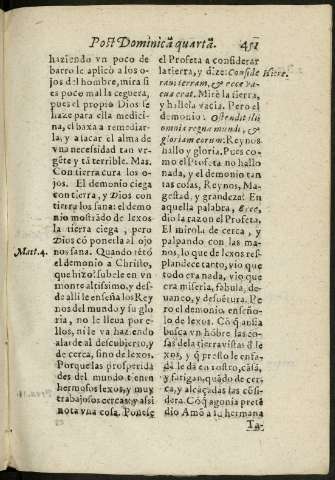 Post Dominicã quartã. 451
haziendo vn poco de
barro le aplicò a los o-
jos del hombre, mira si
es poco mal la ceguera,
pues el propio Dios se
haze para ella medici-
na, el baxa a remediar-
la, y atacar el alma de
vna necesidad tan vr-
gẽte y tã terrible. Mas.
Con tierra cura los o-
jos. El demonio ciega
con tierra, y Dios con
tierra los sana: el demo
nio mostrãdo de lexos
la tierra ciega, pero
Dios cõ ponerla al ojo
nos sana. Quando tẽtò
Matt. 4.
el demonio a Christo,
que hizo? subele en vn
monte altissimo, y des-
de alli le enseña los Rey
nos del mundo y su glo
ria, no le lleua por e-
llos, ni le va haziendo
alarde al descubierto, y
de cerca, sino de lexos.
Porque las prosperida
des del mundo tienen
hermosos lexos, y muy
trabajosos cercas, y assi
nota vna cosa. Ponese
el Profeta a considerar
la tierra, y dize: Conside
Hiere.
raui terram, & ecce va-
cua erat. Mirè la tierra,
y hallela vacia. Pero el
demonio: Ostendit illi
omnia regna mundi, &
gloriam eorum: Reynos
hallo y gloria. Pues co-
mo el Profeta no hallo
nada, y el demonio tan
tas cosas, Reynos, Ma-
gestad, y grandeza? En
aquella palabra, Ecce,
dio la razon el Profeta.
El mirola de cerca, y
palpando con las ma-
nos, lo que de lexos res-
plandece tanto, vio que
todo era nada, vio que
era miseria, fabula, de-
uaneo, y desuẽtura. Pe
ro el demonio enseño-
lo de lexos. Cõ q̃ ansia
busca vn hõbre las co-
sas dela tierra vistas d̃ le
xos, y q̃ presto le enfa-
dã le dã en rostro, cãsã,
y fatigan, quãdo de cer
ca, y alcaçadas las cõsi-
dera. Cõ q̃ agonia prete
dio Amõ a su hermana
Ta-